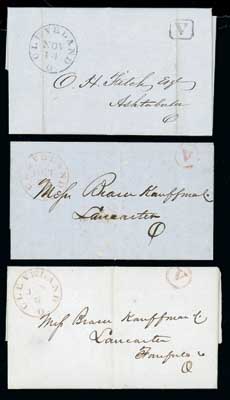 CLEVELAND O.
NOV
14
A
O. H. Fitch, Esq
Ashtabula
O
CLEVELAND
A
Mess Brasee Kauffman & Co
Lancaster
O
CLEVELAND
A
Mess Brasee Kauffman & Co
Lancaster
O